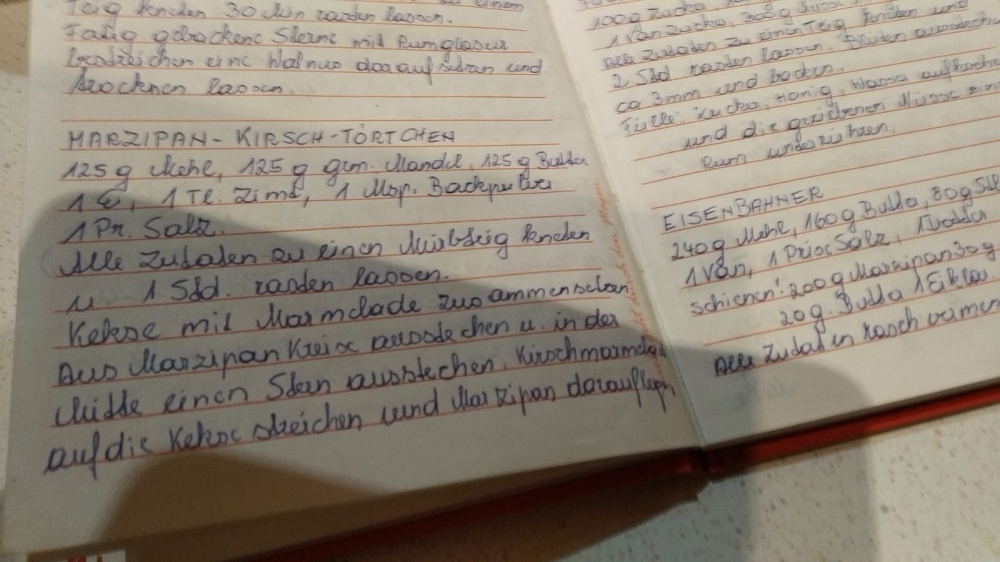 Teig kneten 30 Min rasten lassen.
Fertig gebackene Sterne mit Rumglasur
bestreichen eine Walnus darauf setzen und
trocknen lassen.
MARZIPAN-KIRSCH-TÖRTCHEN
125g Mehl, 125g gem. Mandel, 125g Butter
1 Ei, 1 Tl. Zimt, 1 Msp. Backpulver
1 Pr. Salz.
Alle Zutaten zu einen Mürbteig kneten
u. 1 Std. rasten lassen.
Kekse mit Marmelade zusammensetzen
Aus Marzipan Kreise ausstechen u. in der
Mitte einen Stern ausstechen. Kirschmarmelad
auf die Kekse streichen und Marzipan darauflegen
100g Zucker
1 Vanzucker, 300g Nüsse
Alle Zutaten zu einen Teig kneten und
2 Std rasten lassen. Blüten ausstech
ca 3mm und backen.
Fülle: Zucker, Honig, Wasser aufkoche
und die geriebenen Nüsse ein
Rum unterziehen.
EISENBAHNER
240g Mehl, 160g Butter, 80g Sta
1 Van, 1 Prise Salz, 1 Dotter
Schienen: 200g Marzipan 30g
20g. Butter 1 Eiklar
Alle Zutaten rasch vermen